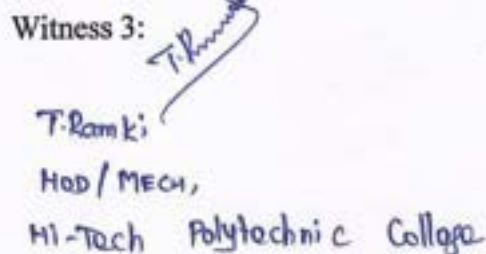 Witness 3:
T.Ramki
HOD/MECH,
Hi-Tech Polytechnic College